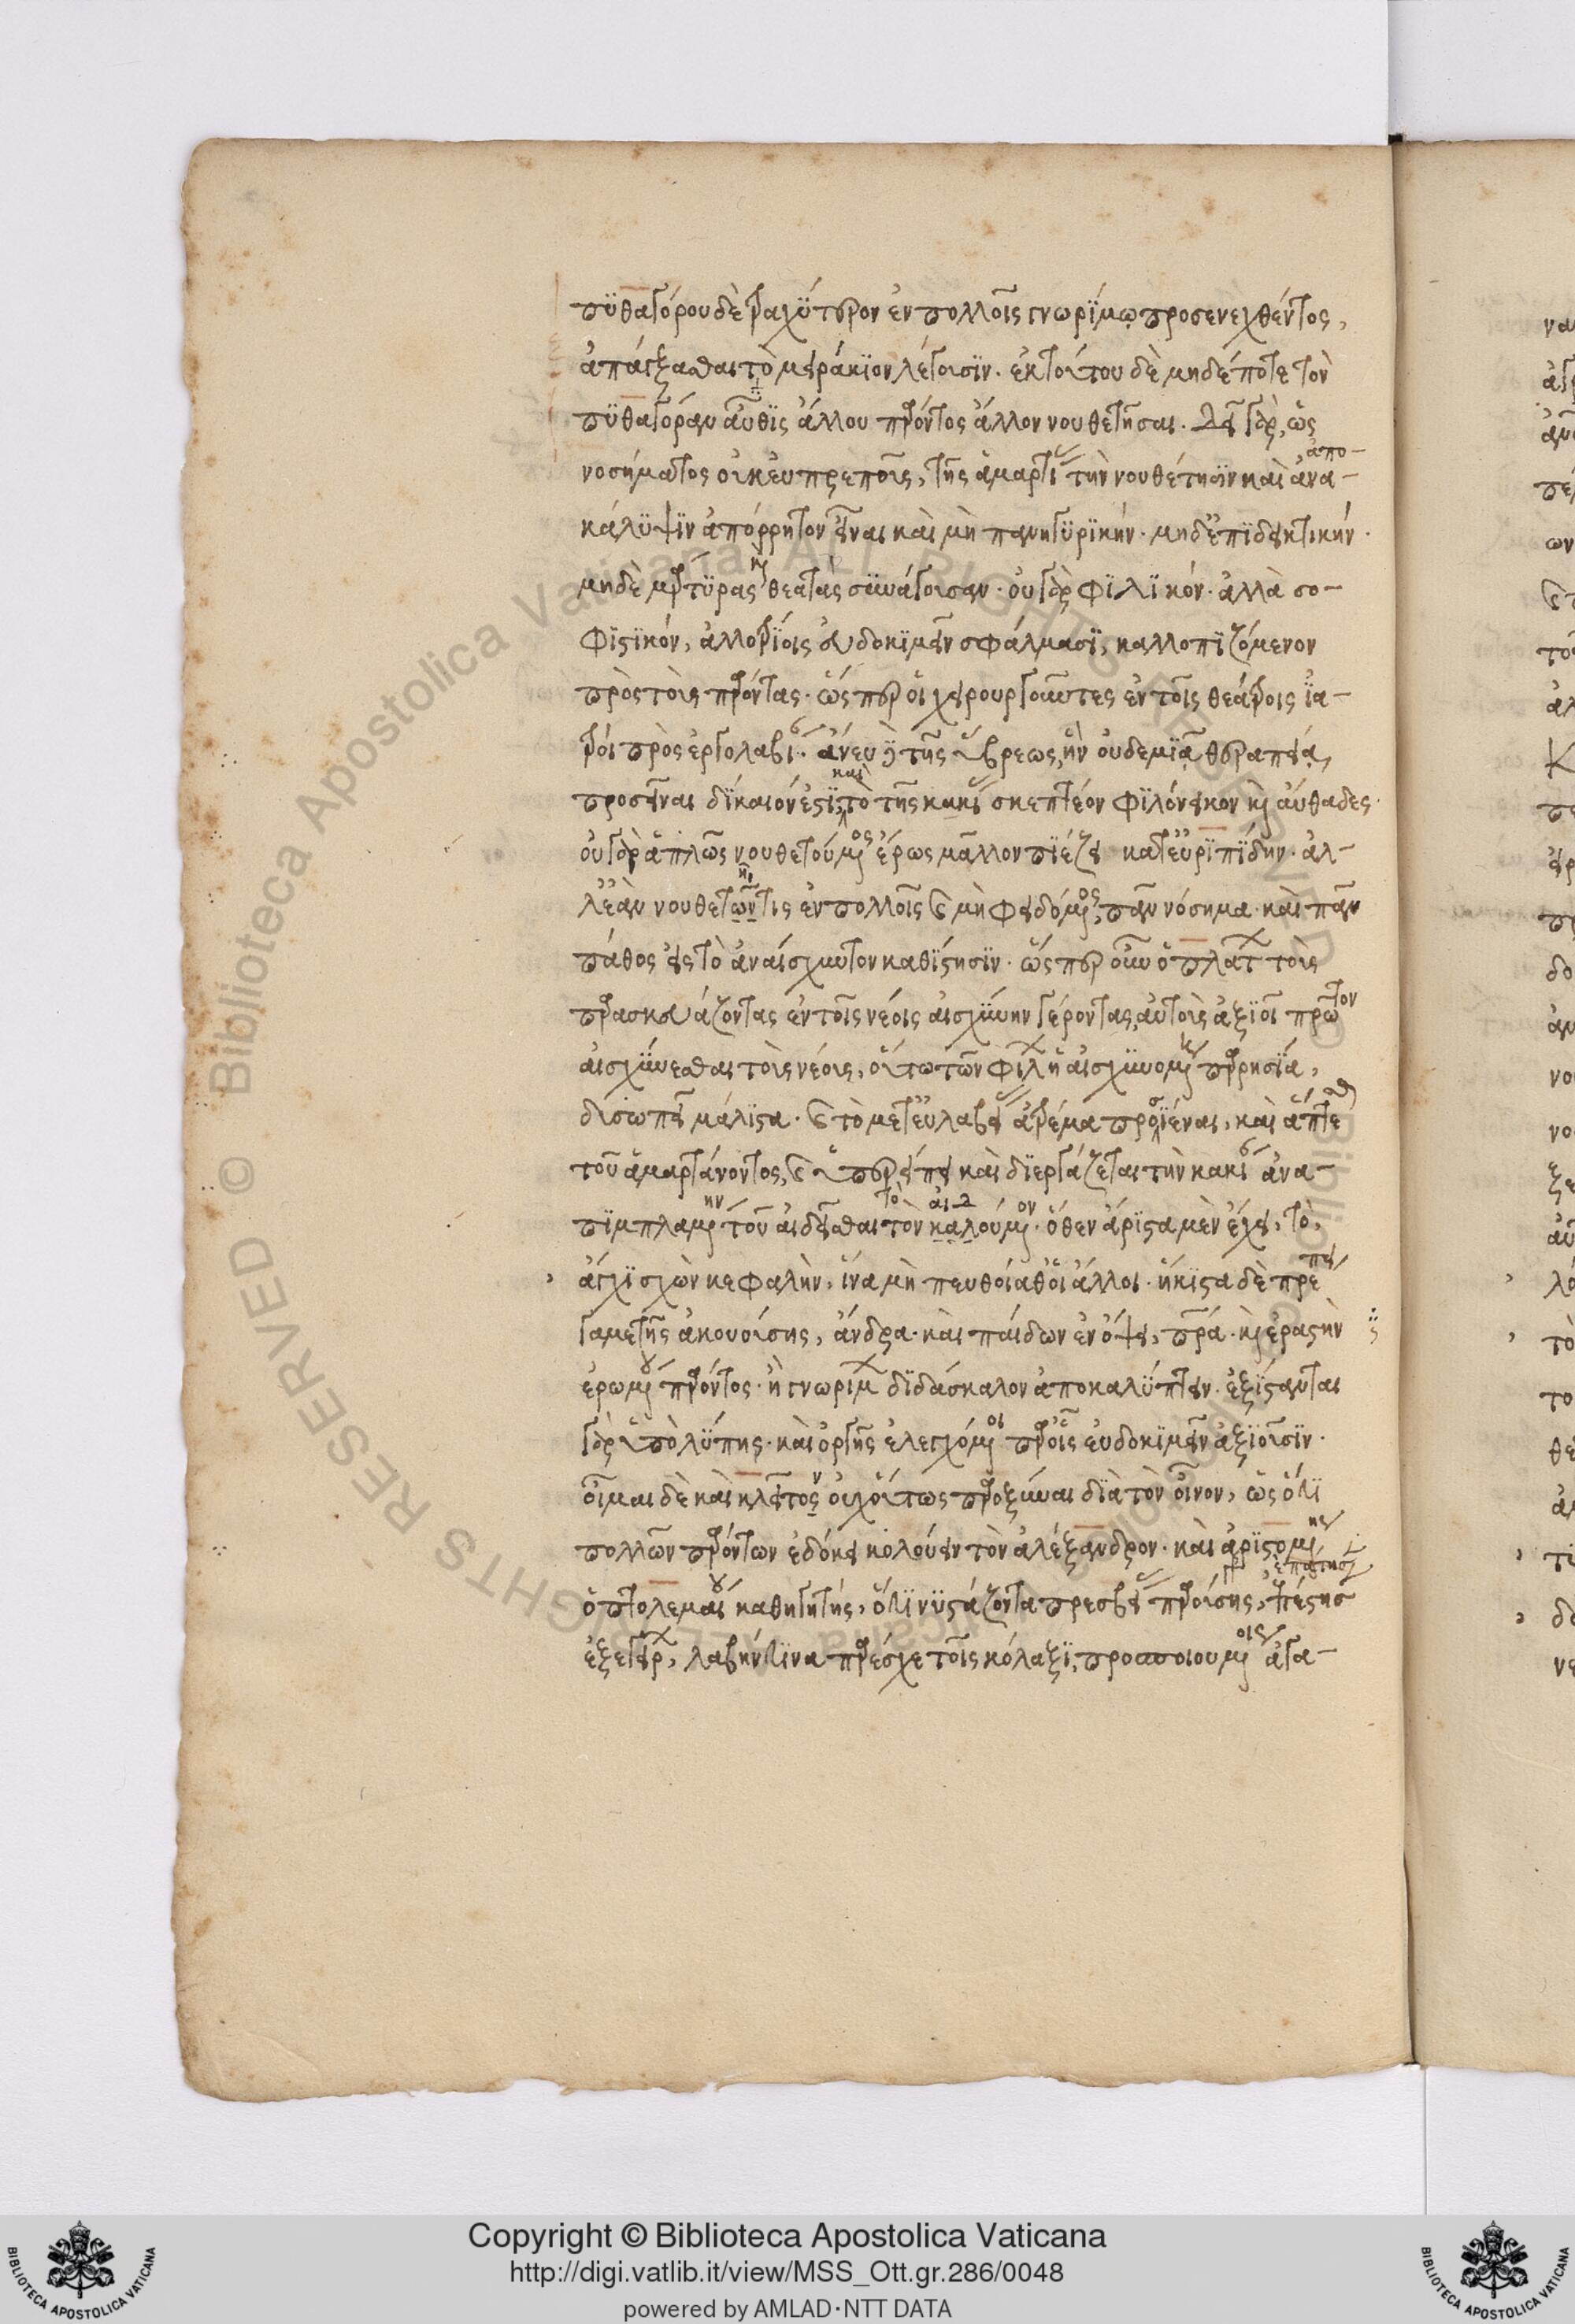 πυθαγόρου δὲ τραχύτερον ἐν πολλοῖς γνωρίμῳ προσενεχθέντος,
ἀπάγξασθαι τὸ μειράκιον λέγουσιν. ἐκ τούτου δὲ μηδέποτε τὸν
πυθαγόραν αὖθις ἄλλου παρόντος ἄλλον νουθετῆσαι. δεῖ γὰρ, ὡς
νοσήματος οὐκ εὐπρεποῦς, τῆς ἁμαρτίας τὴν νουθέτησιν καὶ ἀνα-
ἀπο-
κάλυψιν ἀπόρρητον εἶναι καὶ μὴ πανηγυρικήν. μηδ' ἐπιδεικτικήν.
μηδὲ μάρτυρας καὶ θεατὰς συνάγουσαν. οὐ γὰρ φιλικόν. ἀλλὰ σο-
φιστικόν, ἀλλοτρίοις εὐδοκιμεῖν σφάλμασι, καλλοπιζόμενον
πρὸς τοὺς παρόντας. ὥσπερ οἱ χειρουργοῦντες ἐν τοῖς θεάτροις ἰα-
τροὶ πρὸς ἐργολαβίαν. ἄνευ δὲ τῆς ὕβρεως, ἣν οὐδεμιᾷ θεραπείᾳ,
προσεῖναι δίκαιόν ἐστι, καὶ τὸ τῆς κακίας σκεπτέον φιλόνεικον καὶ αὔθαδες.
οὐ γὰρ ἁπλῶς νουθετούμενος ἔρως μᾶλλον πιέζει κατ' εὐριπίδην. ἀλ-
λ' ἐὰν νουθετῶν τις ἐν πολλοῖς καὶ μὴ φειδόμενος, πᾶν νόσημα καὶ πᾶν
πάθος εἰς τὸ ἀναίσχυντον καθίστησιν. ὥσπερ οὖν ὁ πλάτων τοὺς
παρασκευάζοντας ἐν τοῖς νέοις αἰσχύνην γέροντας, αὐτοὺς ἀξιοῖ πρῶτον
αἰσχύνεσθαι τοὺς νέους, οὕτω τῶν φίλων ἡ αἰσχυνομένη παρρησία,
δισωπεῖ μάλιστα. καὶ τὸ μετ' εὐλαβείας ἀτρέμα προσιέναι, καὶ ἅπτεσθαι
τοῦ ἁμαρτάνοντος, καὶ ὑπερείπει καὶ διεργάζεται τὴν κακίαν ἀνα-
πιμπλαμένην τοῦ αἰδεῖσθαι τὸν καλούμενον. ὅθεν ἄριστα μὲν ἔχει, τὸ,
ἄγχι σχὼν κεφαλὴν, ἵνα μὴ πευθοίαθ' οἱ ἄλλοι. ἥκιστα δὲ πρέπει
γαμετῆς ἀκουούσης, ἄνδρα. καὶ παίδων ἐν ὄψει, πατέρα. καὶ ἐραστὴν
ἐρωμένου παρόντος. ἢ γνωρίμων διδάσκαλον ἀποκαλύπτειν. ἐξίστανται
γὰρ ὑπὸ λύπης. καὶ ὀργῆς ἐλεγχόμενοι παρ' οἷς εὐδοκιμεῖν ἀξιοῦσιν.
οἶμαι δὲ καὶ κλεῖτον οὐχ οὕτως παροξῦναι διὰ τὸν οἶνον, ὡς ὅτι
πολλῶν παρόντων ἐδόκει κολούειν τὸν ἀλέξανδρον. καὶ ἀριστομένης
ὁ πτολεμαίου καθηγητὴς, ὅτι νυστάζοντα πρεσβείας παρούσης,
ἐξεγείρων, λαβὴν τινα παρέσχε τοῖς κόλαξι, προσποιουμένοις ἀγα-